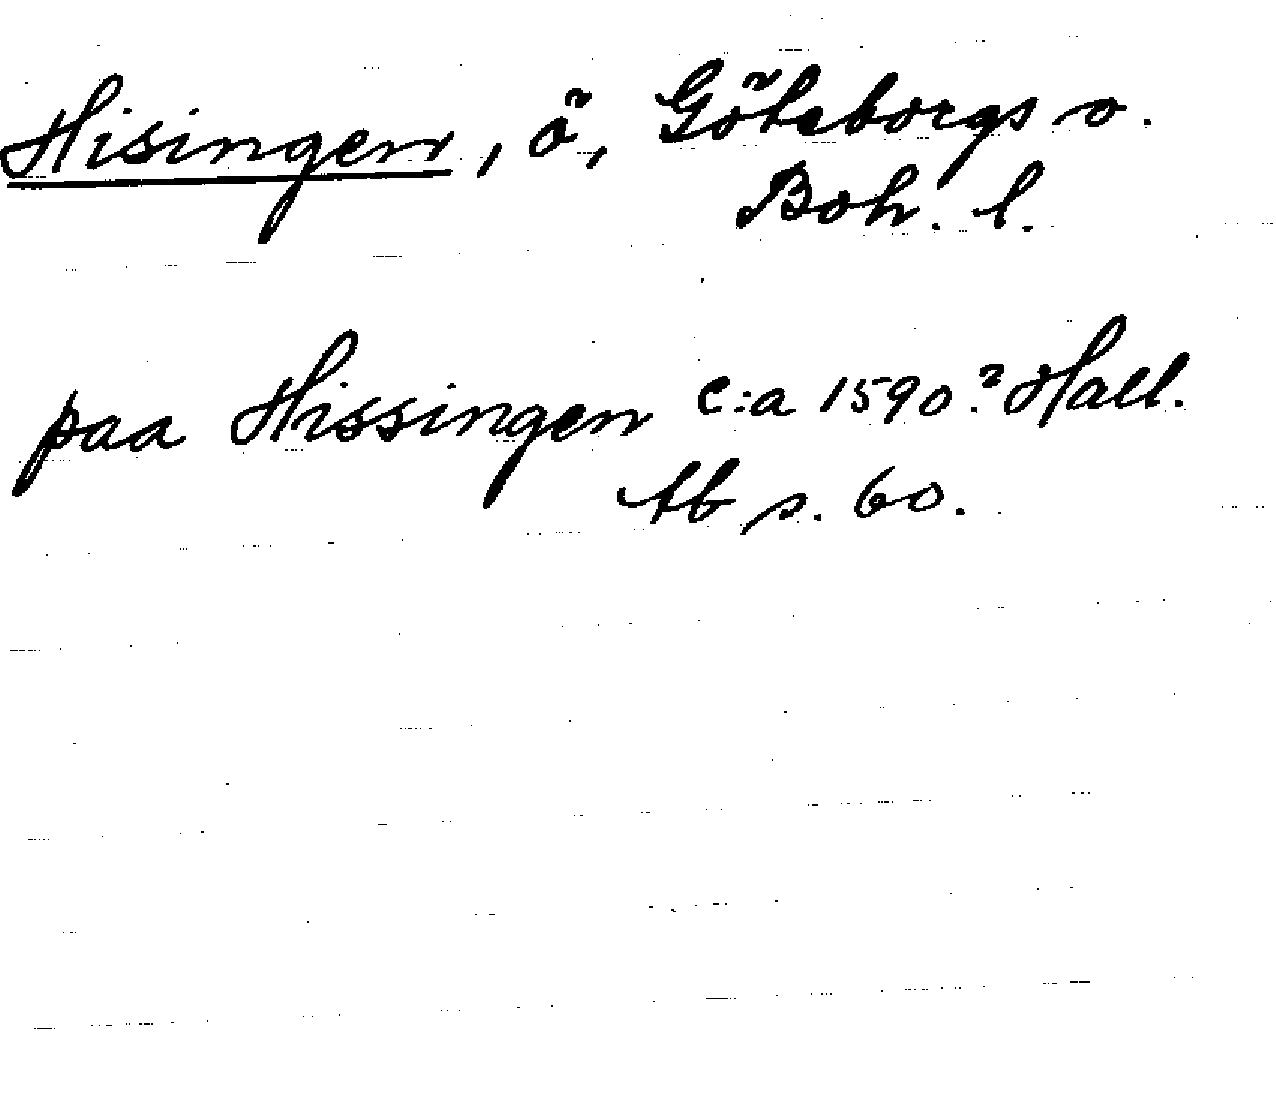 Hisingen, ö, Göteborgs o.
Boh. l.
paa Hissingen c:a 1590.? Hall.
Ab s. 60.